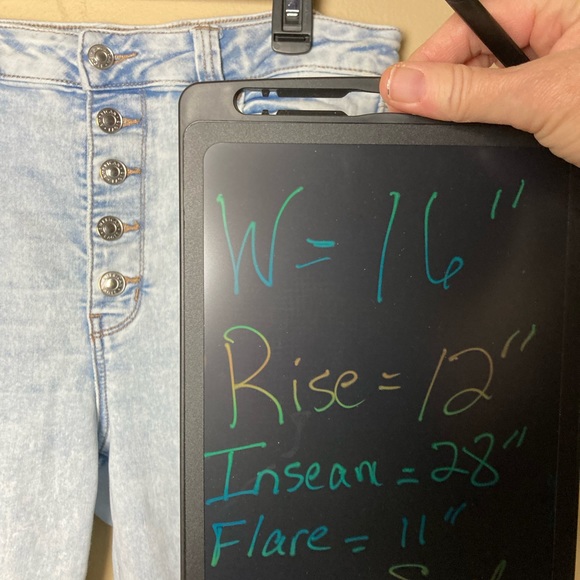 W = 16"
Rise = 12"
Inseam = 28"
Flare = 11"